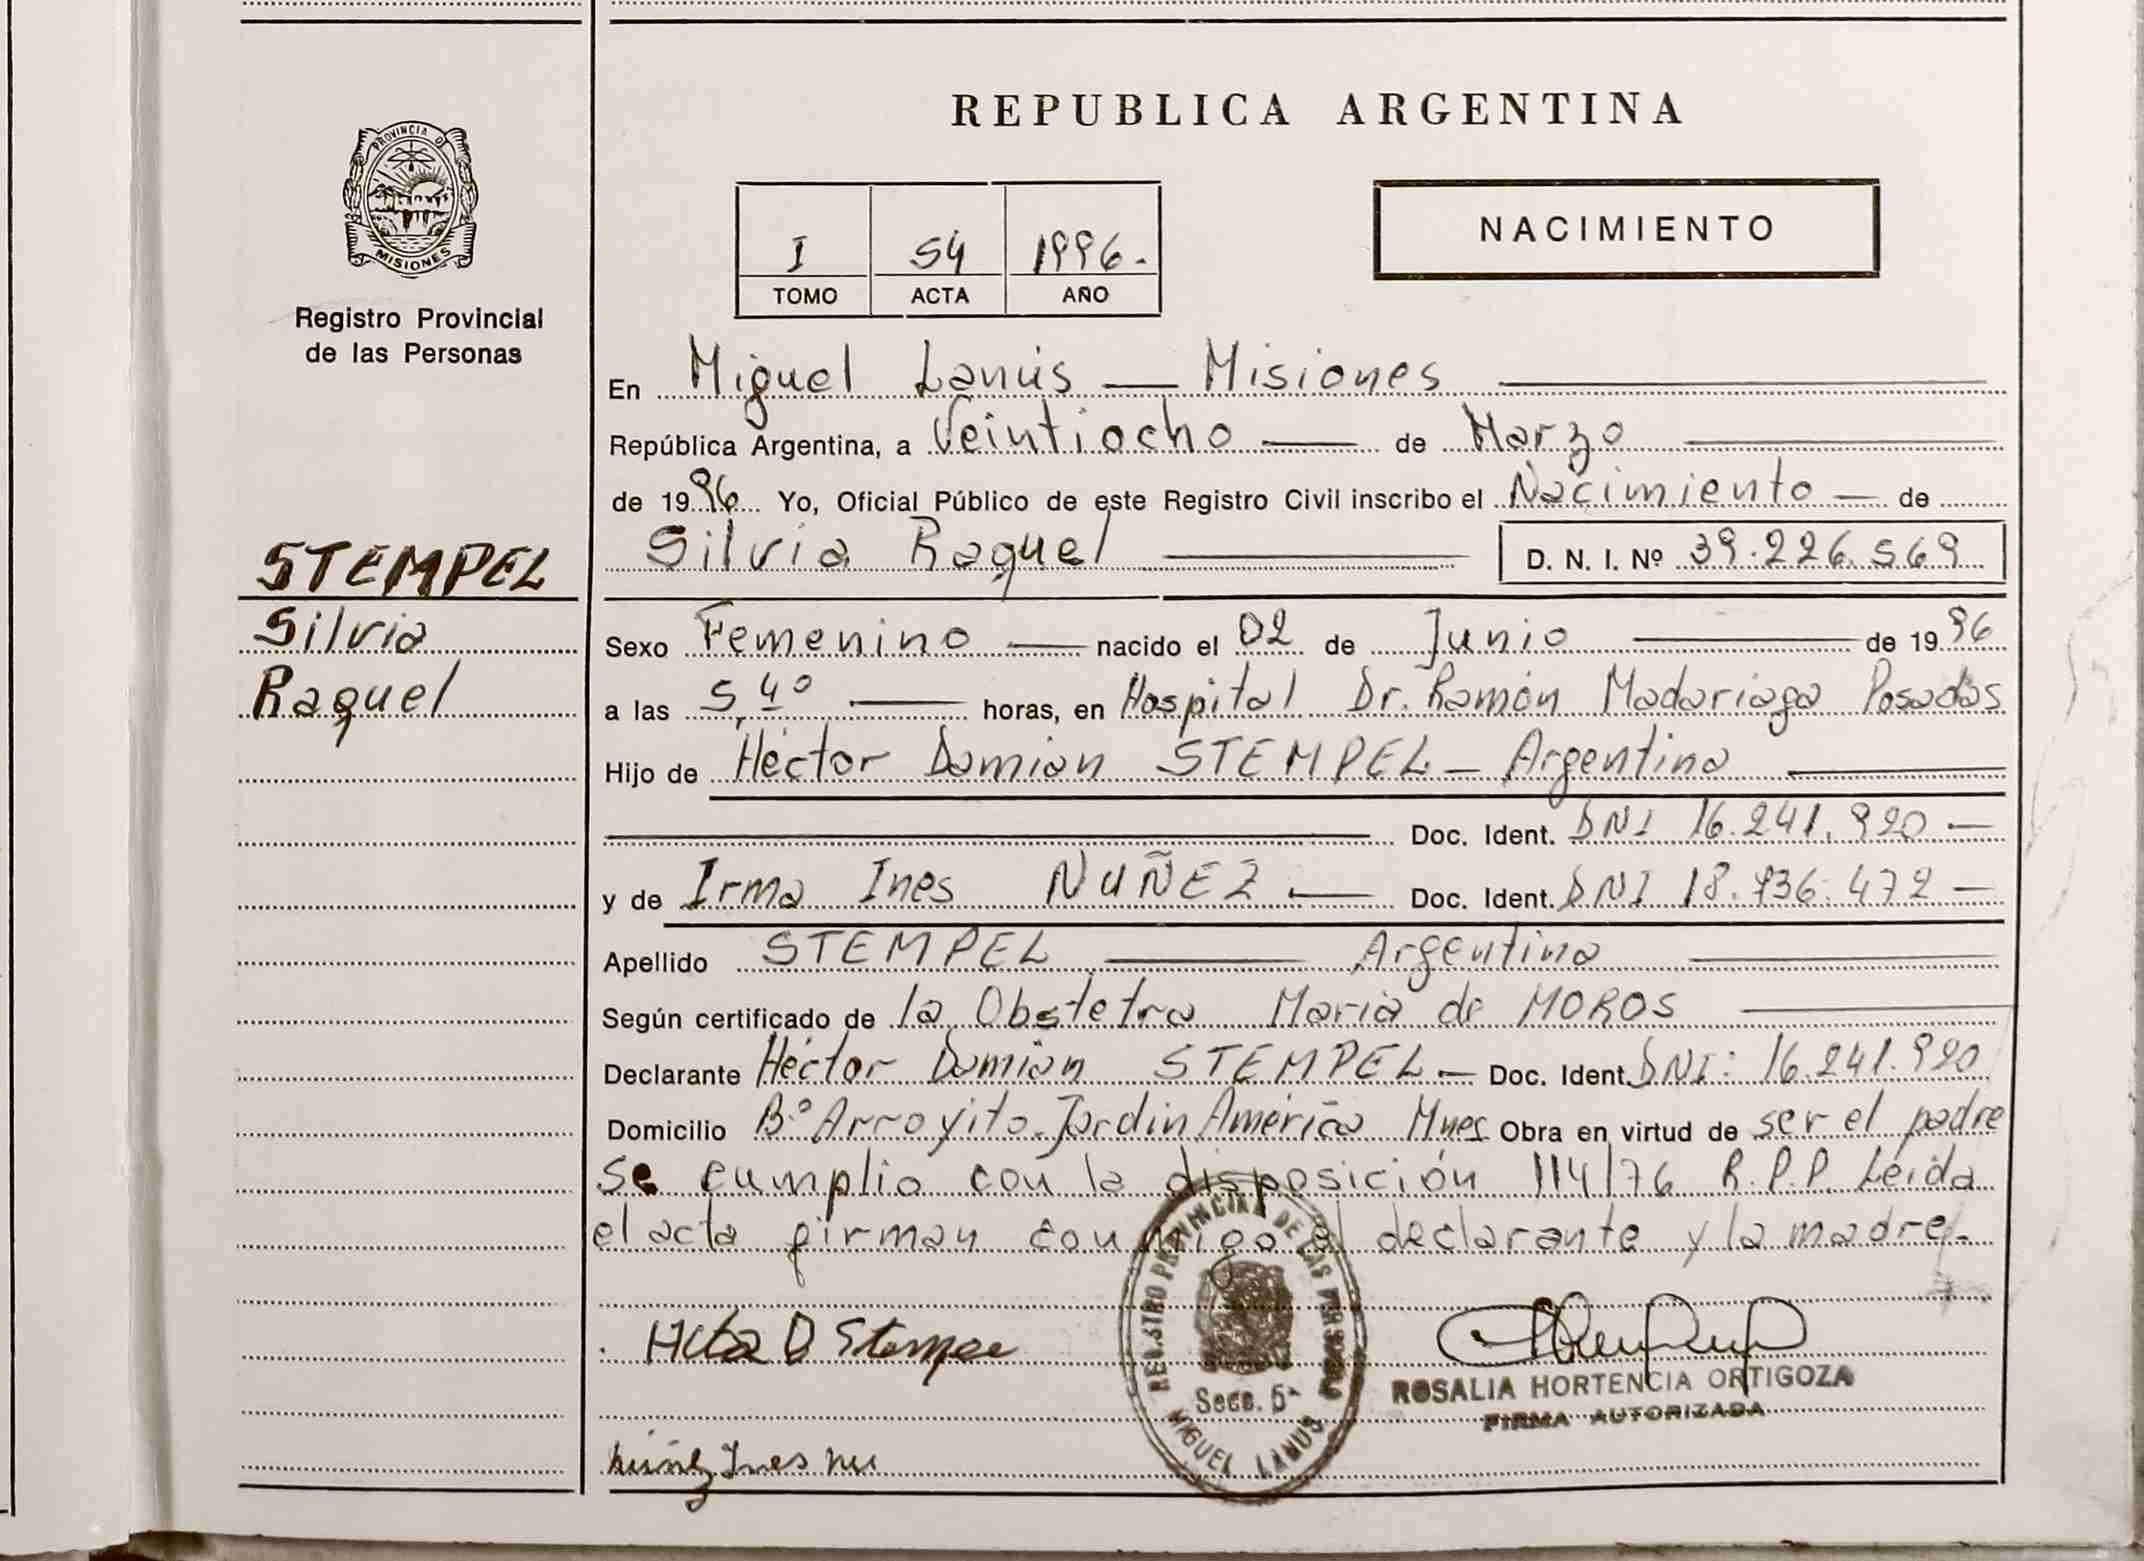 REPUBLICA ARGENTINA
PROVINCIA DE
MISIONES
Registro Provincial
de las Personas
I 54 1996.
TOMO ACTA AÑO
NACIMIENTO
En Miguel Lanús — Misiones
República Argentina, a Veintiocho de Marzo
de 1996 Yo, Oficial Público de este Registro Civil inscribo el Nacimiento de
STEMPEL
Silvia
Raquel
Silvia Raquel D. N. I. Nº 39.226.569
Sexo Femenino nacido el 02 de Junio de 1996
a las 5,40 horas, en Hospital Dr. Ramón Madariaga Posadas
Hijo de Héctor Damian STEMPEL — Argentino
Doc. Ident. DNI 16.241.920 —
y de Irma Ines NUÑEZ — Doc. Ident. DNI 18.736.472 —
Apellido STEMPEL Argentina
Según certificado de la Obstetra Maria de MOROS
Declarante Héctor Damian STEMPEL — Doc. Ident. DNI: 16.241.920
Domicilio Bº Arroyito. Jardin América Mnes Obra en virtud de ser el padre
se cumplio con la disposición 114/76 R.P.P. Leida
el acta firman conmigo el declarante y la madre.
REGISTRO PROVINCIAL DE LAS PERSONAS
Secc. 5ª
MIGUEL LANUS
ROSALIA HORTENCIA ORTIGOZA
FIRMA AUTORIZADA